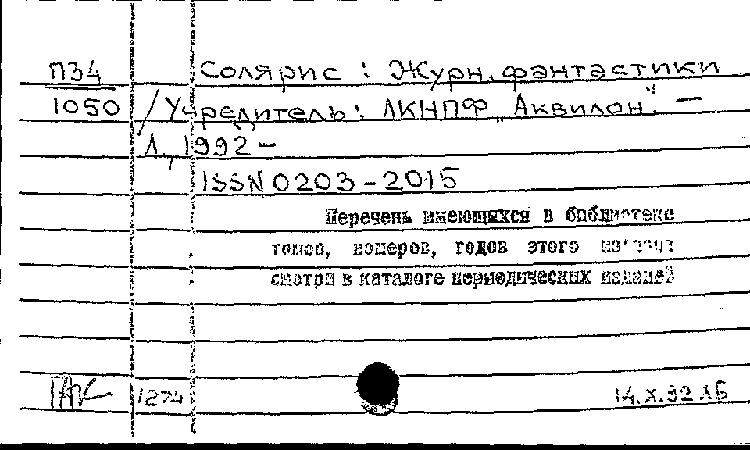 П34 Солярис : Журн. фантастики
1050 / Учредитель: ЛКНПФ „Аквилон". —
Л., 1992 –
ISSN 0203-2015
Перечень имеющихся в библиотеке
томов, номеров, годов этого
смотри в каталоге периодических изданий
1274 14.X.92 ЛБ